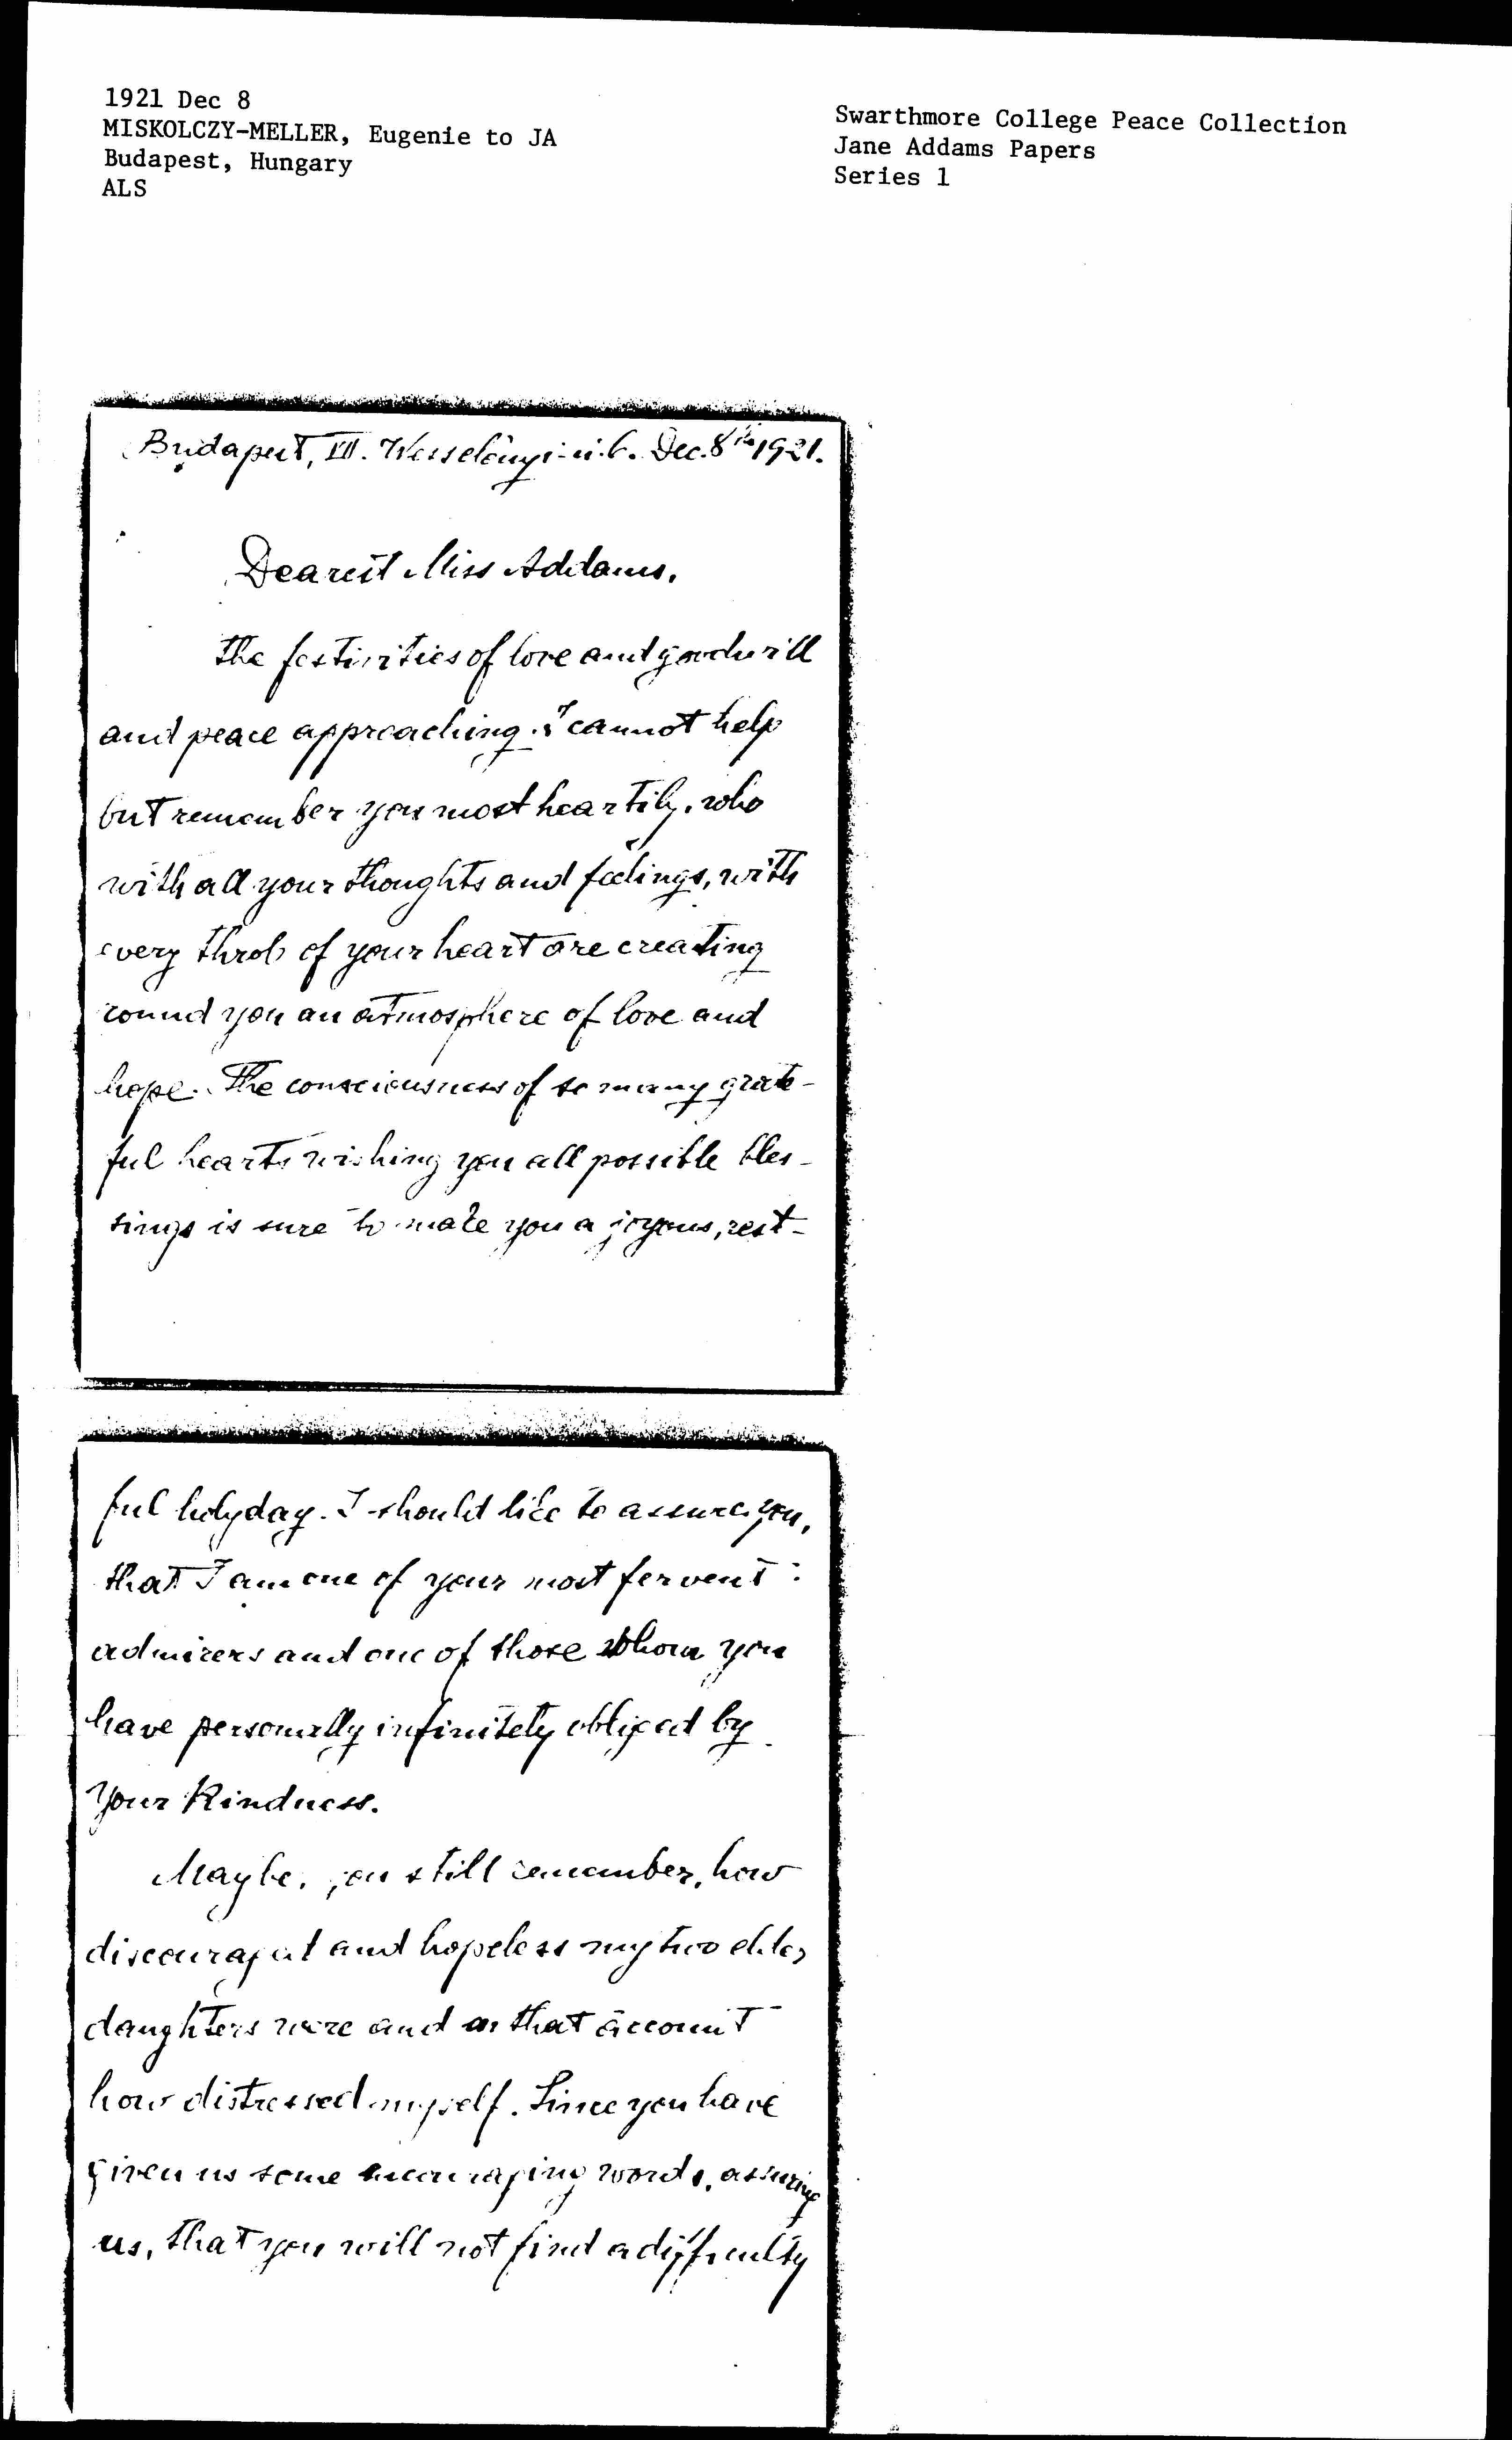 1921 Dec 8
MISKOLCZY-MELLER, Eugenie to JA
Budapest, Hungary
ALS
Swarthmore College Peace Collection
Jane Addams Papers
Series 1
Budapest, III. Wesselényi-u. 6. Dec. 8th 1921.
Dearest Miss Addams,
The festivities of love and goodwill
and peace approaching. I cannot help
but remember you most heartily, who
with all your thoughts and feelings, with
every throb of your heart are creating
round you an atmosphere of love and
hope. The consciousness of so many grate-
ful hearts wishing you all possible bles-
sings is sure to make you a joyous, rest-
ful holyday. I should like to assure you,
that I am one of your most fervent
admirers and one of those whom you
have personally infinitely obliged by
Your Kindness.
Maybe, you still remember, how
discouraged and hopeless my two elder
daughters were and on that account
how distressed myself. Since you have
given us some encouraging words, assuring
us, that you will not find a difficulty